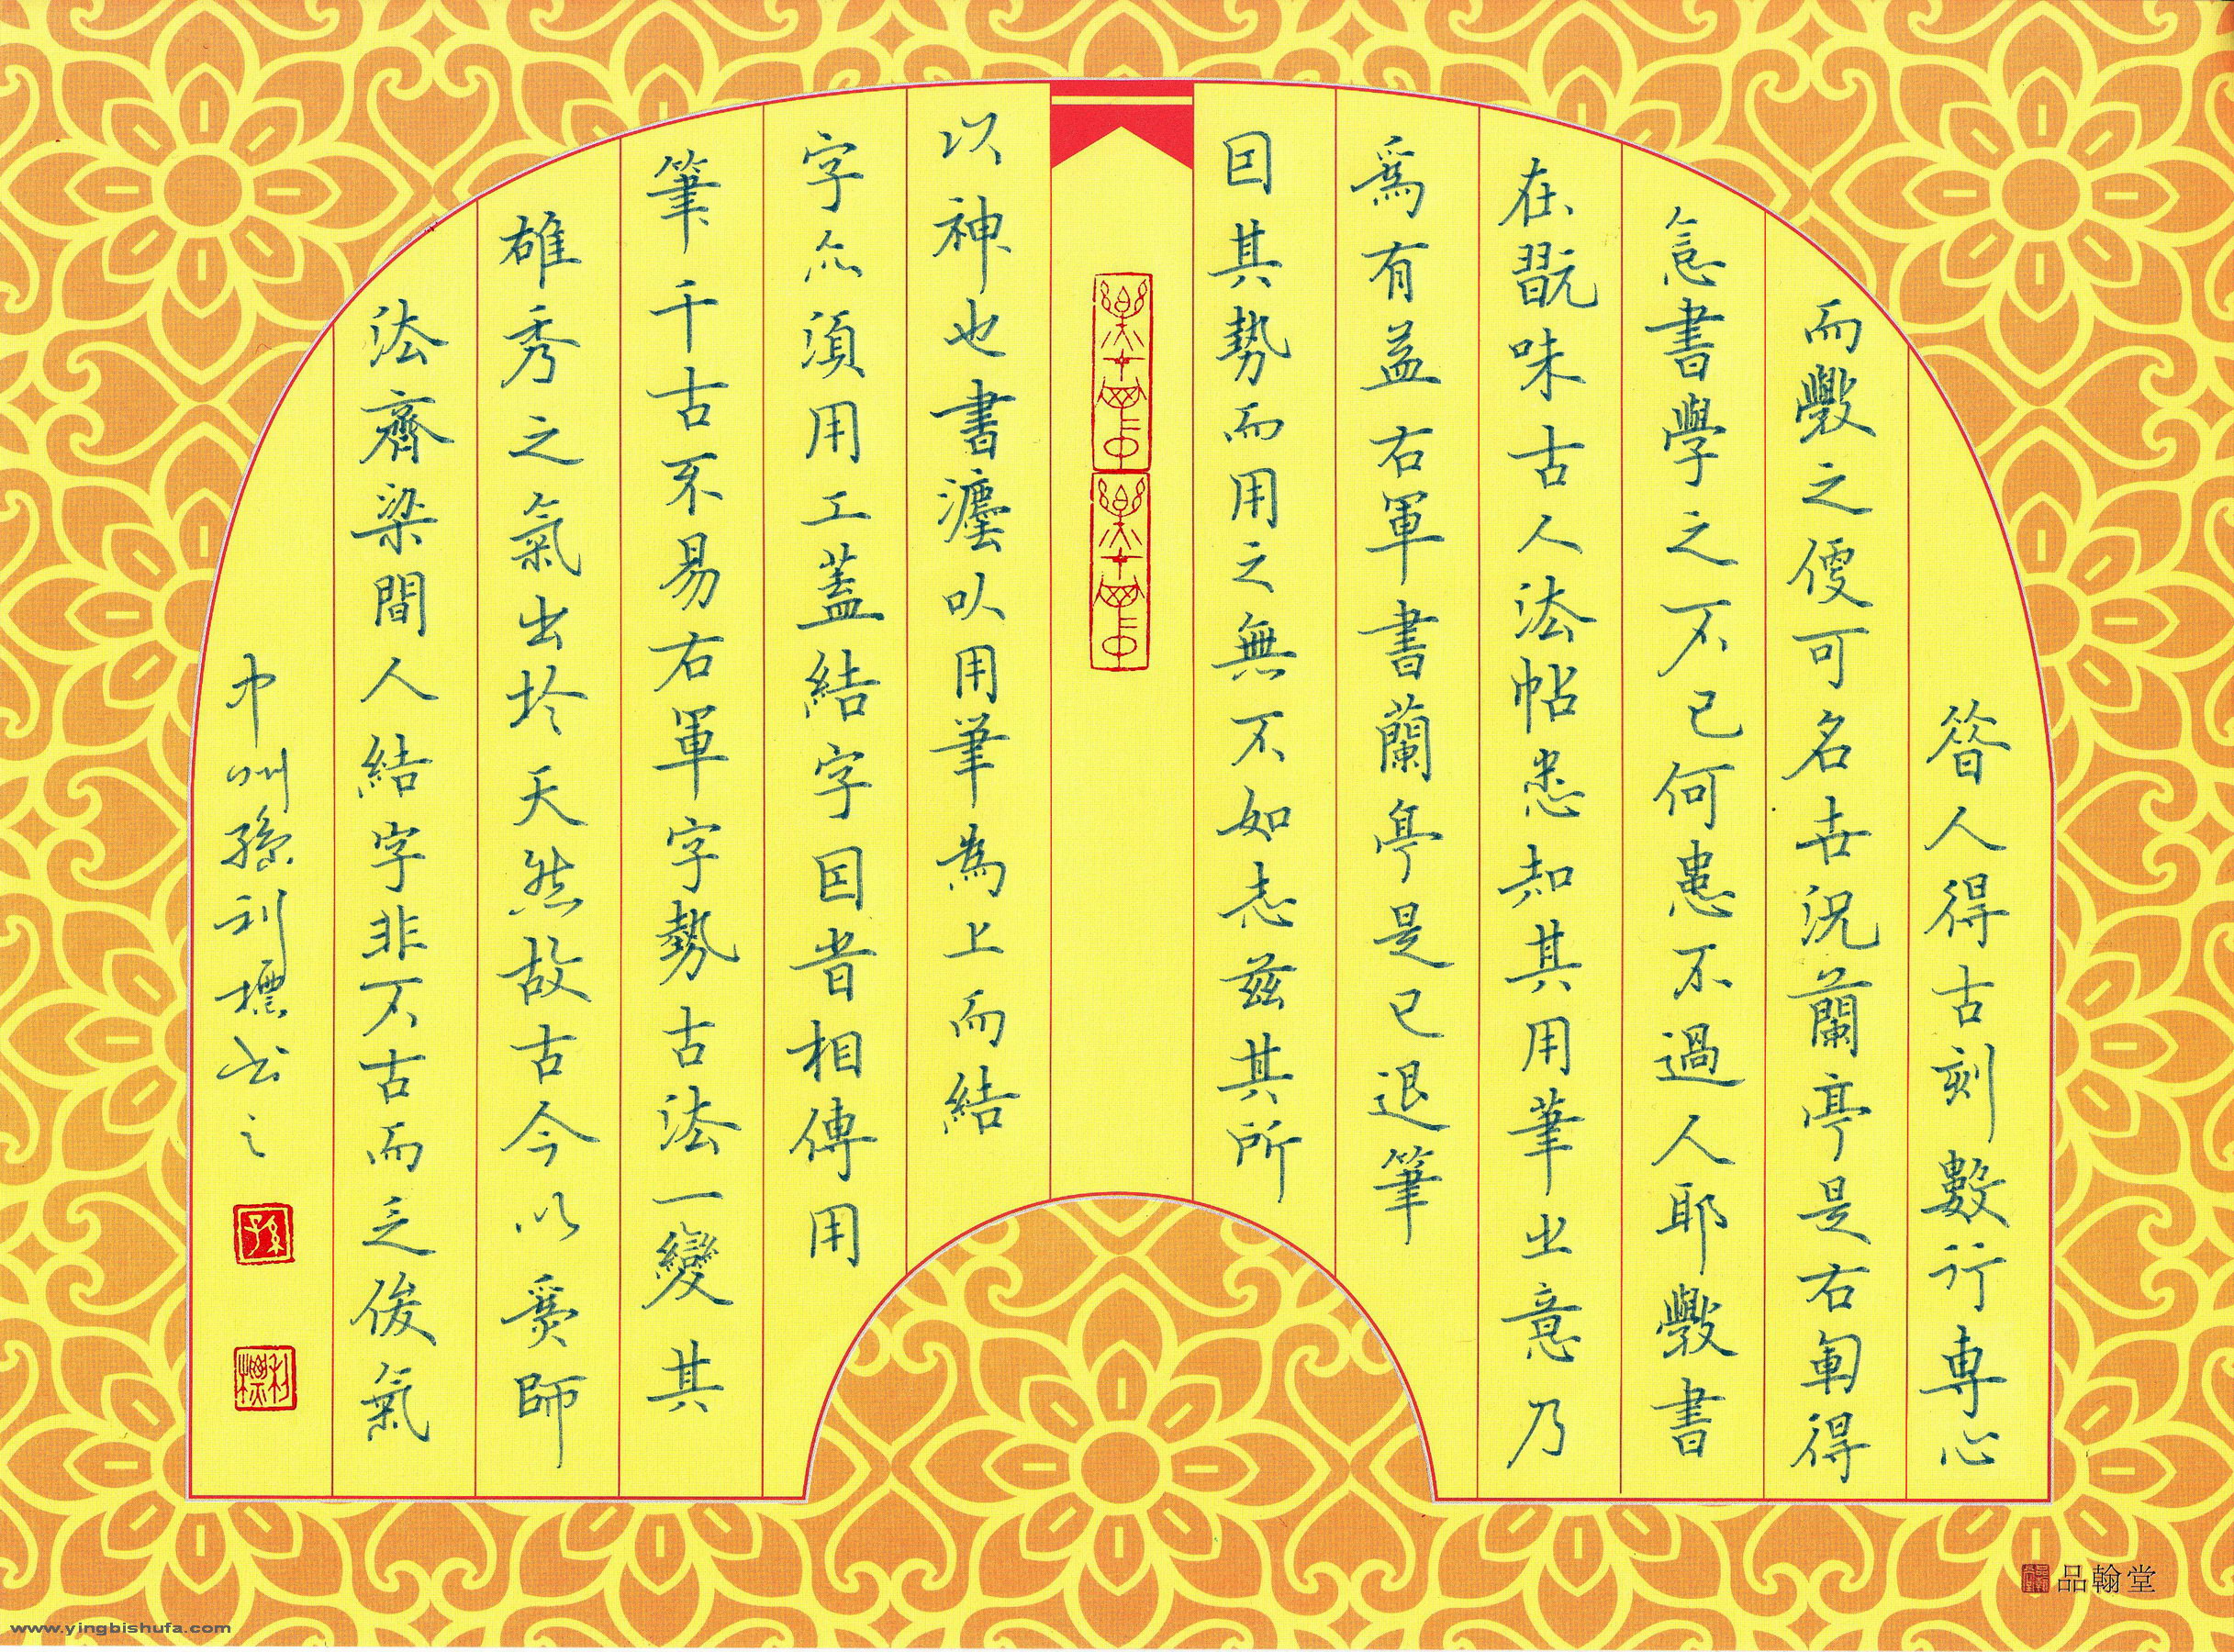 昝人得古刻數行專心
而斆之便可名世况蘭亭是右軍得
意書學之不已何患不過人耶斆書
在翫味古人法帖悉知其用筆之意乃
爲有益右軍書蘭亭是已退筆
因其勢而用之無不如志兹其所
以神也書法以用筆為上而結
字亦須用工蓋結字因昔相傳用
筆千古不易右軍字勢古法一變其
雄秀之氣出於天然故古今以爲師
法齊梁間人結字非不古而乏俊氣
中州孫利標书之
孫
利標
品翰堂
www.yingbishufa.com